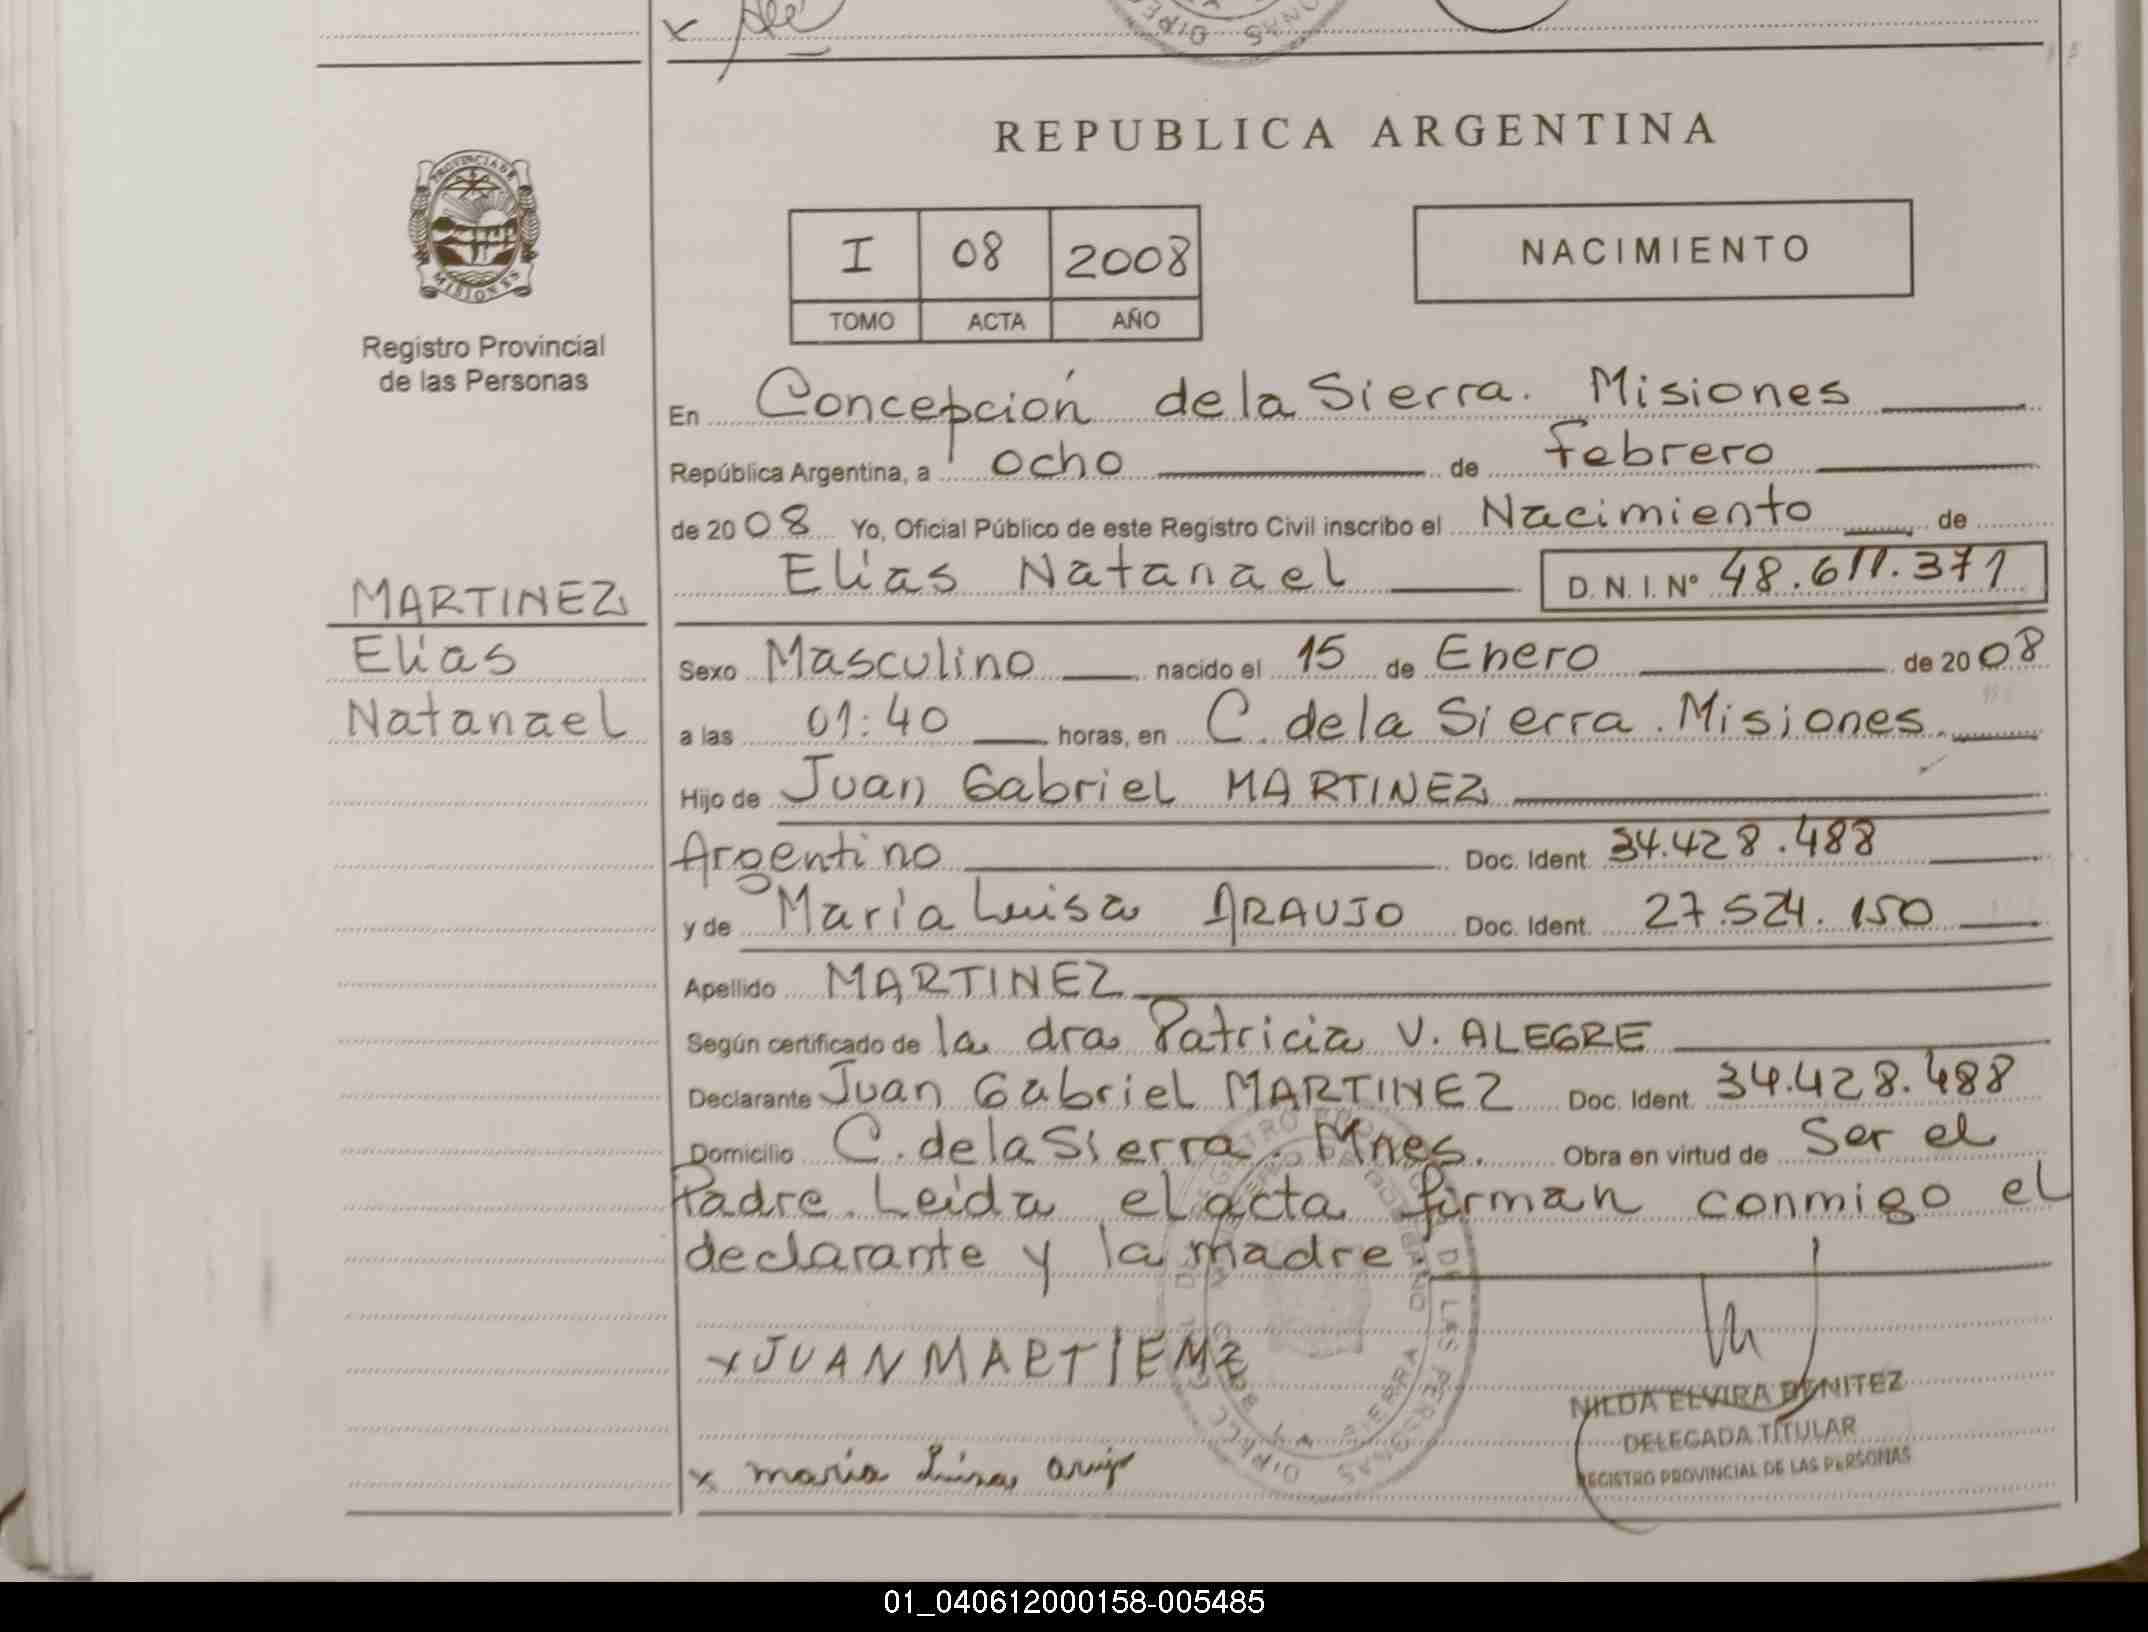 REPUBLICA ARGENTINA
PROVINCIA DE
MISIONES
Registro Provincial
de las Personas
I 08 2008
TOMO ACTA AÑO
NACIMIENTO
En Concepción de la Sierra. Misiones
República Argentina, a ocho de Febrero
de 2008 Yo, Oficial Público de este Registro Civil inscribo el Nacimiento de
Elías Natanael D. N. I. Nº 48.611.371
MARTINEZ
Elías
Natanael
Sexo Masculino nacido el 15 de Enero de 2008
a las 01:40 horas, en C. de la Sierra. Misiones.
Hijo de Juan Gabriel MARTINEZ
Argentino Doc. Ident. 34.428.488
y de María Luisa ARAUJO Doc. Ident. 27.524.150
Apellido MARTINEZ
Según certificado de la dra Patricia V. ALEGRE
Declarante Juan Gabriel MARTINEZ Doc. Ident. 34.428.488
Domicilio C. de la Sierra. Mnes. Obra en virtud de Ser el
Padre. Leída el acta firman conmigo el
declarante y la madre.
x JUAN MARTIEMZ
x maria Luisa
NILDA ELVIRA BENITEZ
DELEGADA TITULAR
REGISTRO PROVINCIAL DE LAS PERSONAS
01_040612000158-005485